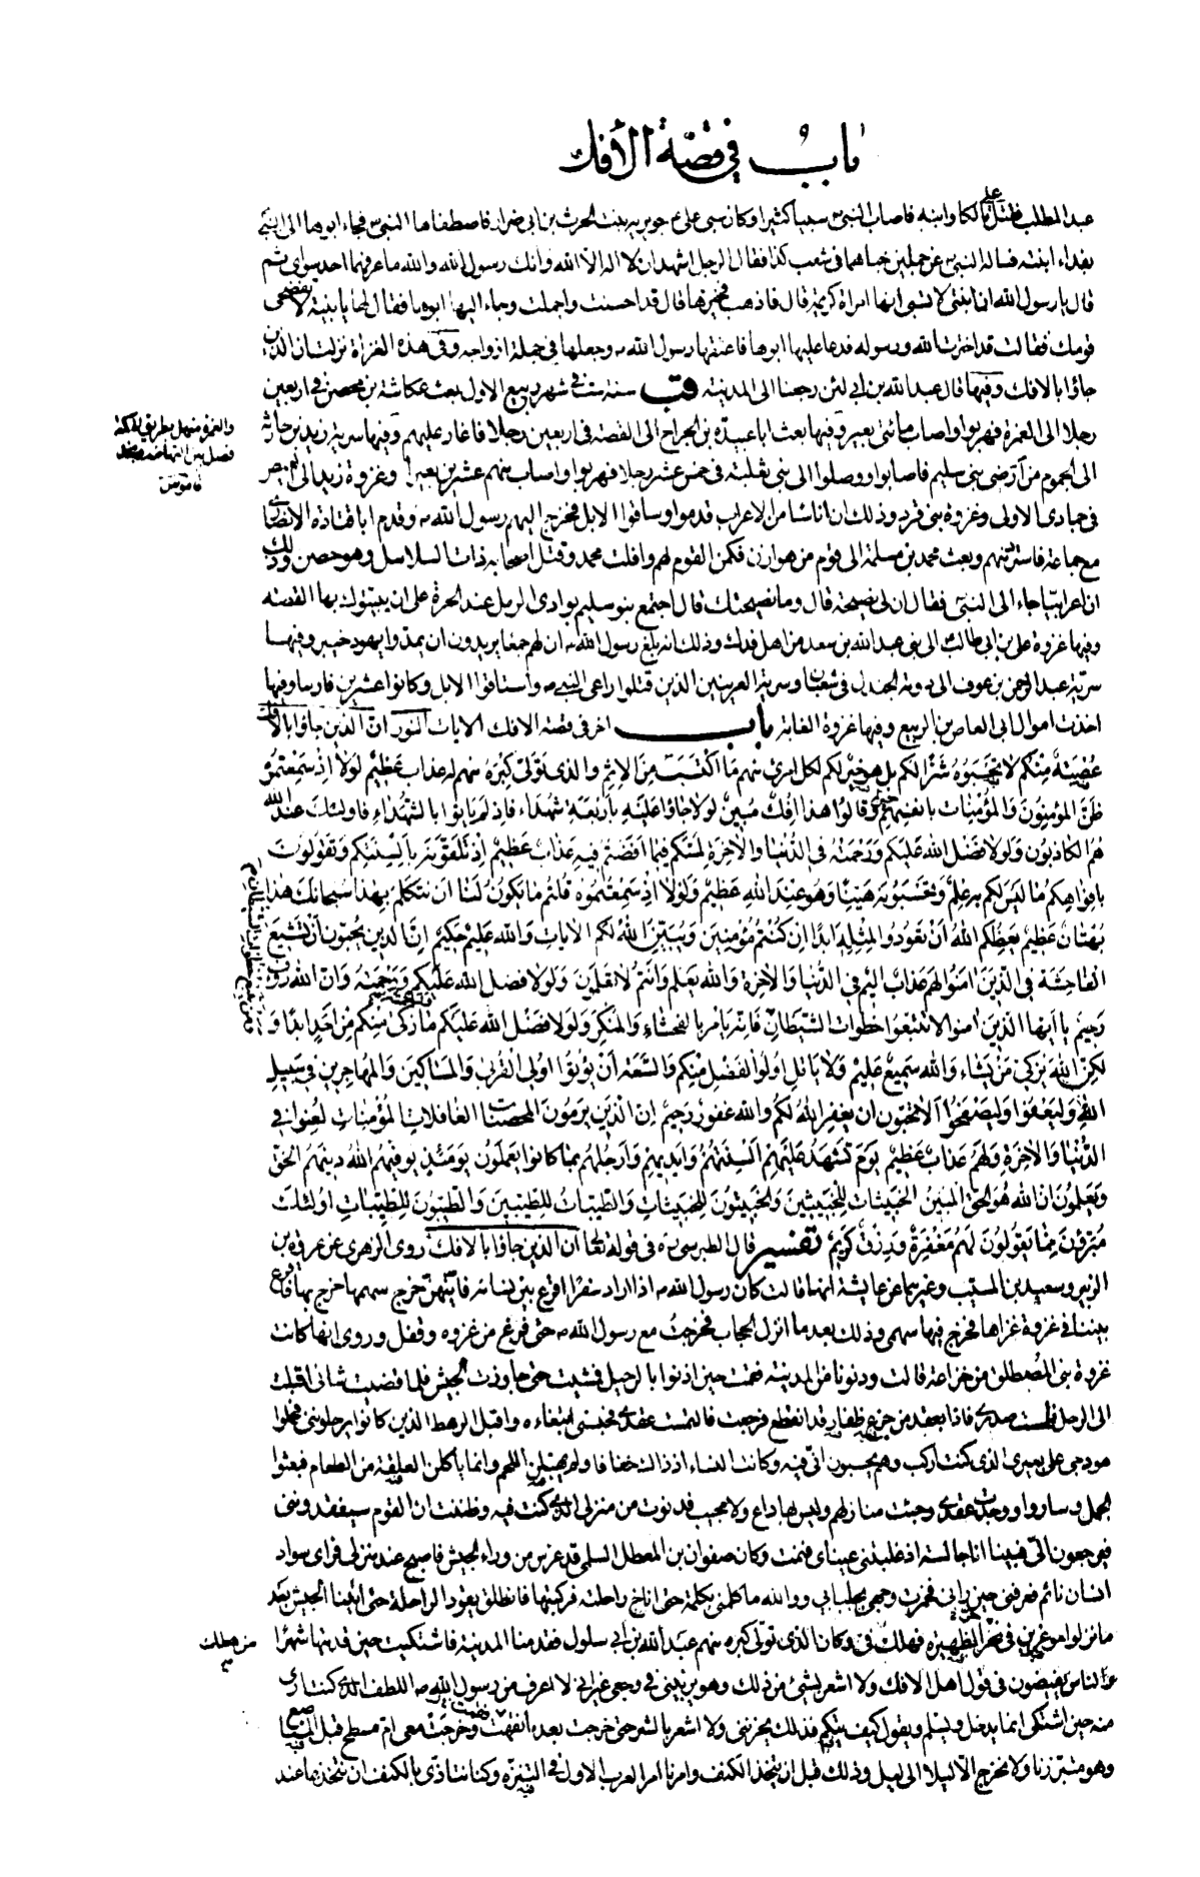 باب في قصة الأفك
عبد المطلب فقتل علي مالكا وابنه فاصاب النبي ص سبيا كثيرا وكان سبى علي ع جويرية بنت الحرث بن ابي ضرار فاصطفاها النبي ص فجاء ابوها الى النبي ص
بفداء ابنته فساله النبي ص عن جملين خباهما في شعب كذا فقال الرجل اشهد ان لا اله الا الله وانك رسول الله والله ما عرفهما احد سواي ثم
قال يا رسول الله ان ابنتي لا تسبى انها امراة كريمة قال فاذهب فخيرها قال قد احسنت واجملت وجاء اليها ابوها فقال لها يا بنية لا تفضحي
قومك فقالت قد اخترت الله ورسوله فدعا عليها ابوها فاعتقها رسول الله ص وجعلها في جملة ازواجه وفي هذه الغزاة نزلت ان الذين
جاؤا بالافك وفيها قال عبد الله بن ابي لئن رجعنا الى المدينة قب سنة ست في شهر ربيع الاول بعث عكاشة بن محصن في اربعين
رجلا الى الغمرة فهربوا واصاب مائتي بعير وفيها بعث ابا عبيدة بن الجراح الى القصة في اربعين رجلا فاغار عليهم وفيها سرية زيد بن حارثة
الى الجموم من ارض بني سليم فاصابوا ووصلوا الى بني ثعلبة في خمس عشر رجلا فهربوا واصاب منهم عشرين بعيرا وغزوة زيد الى العيص
في جمادى الاولى وغزوة بني قرد وذلك ان اناسا من الاعراب قدموا وساقوا الابل فخرج اليهم رسول الله ص وقدم ابا قتادة الانصاري
مع جماعة فاسترد منهم وبعث محمد بن مسلمة الى قوم من هوازن فكمن القوم لهم وافلت محمد وقتل اصحابه ذات السلاسل وهو حصن وذلك
ان اعرابيا جاء الى النبي ص فقال ان لي نصيحة قال وما نصيحتك قال اجتمع بنو سليم بوادى الرمل عند الحرة على ان يبيتوك بها القصة
وفيها غزوة علي بن ابي طالب ع الى بني عبد الله بن سعد من اهل فدك وذلك انه بلغ رسول الله ص ان لهم جمعا يريدون ان يمدوا يهود خيبر وفيها
سرية عبد الرحمن بن عوف الى دومة الجندل في شعبان وسرية العرنيين الذين قتلوا راعي النبي ص واستاقوا الابل وكانوا عشرين فارسا وفيها
اخذت اموال ابي العاص بن الربيع وفيها غزوة الغابة باب اخر في قصة الافك الايات النور ان الذين جاؤا بالافك
عصبة منكم لا تحسبوه شرا لكم بل هو خير لكم لكل امرئ منهم ما اكتسب من الاثم والذي تولى كبره منهم له عذاب عظيم لولا اذ سمعتموه
ظن المؤمنون والمؤمنات بانفسهم خيرا وقالوا هذا افك مبين لولا جاؤا عليه باربعة شهداء فاذ لم ياتوا بالشهداء فاولئك عند الله
هم الكاذبون ولولا فضل الله عليكم ورحمته في الدنيا والاخرة لمسكم فيما افضتم فيه عذاب عظيم اذ تلقونه بالسنتكم وتقولون
بافواهكم ما ليس لكم به علم وتحسبونه هينا وهو عند الله عظيم ولولا اذ سمعتموه قلتم ما يكون لنا ان نتكلم بهذا سبحانك هذا
بهتان عظيم يعظكم الله ان تعودوا لمثله ابدا ان كنتم مؤمنين ويبين الله لكم الايات والله عليم حكيم ان الذين يحبون ان تشيع
الفاحشة في الذين امنوا لهم عذاب اليم في الدنيا والاخرة والله يعلم وانتم لا تعلمون ولولا فضل الله عليكم ورحمته وان الله رؤف
رحيم يا ايها الذين امنوا لا تتبعوا خطوات الشيطان ومن يتبع خطوات الشيطان فانه يامر بالفحشاء والمنكر ولولا فضل الله عليكم ورحمته ما زكى منكم من احد ابدا و
لكن الله يزكي من يشاء والله سميع عليم ولا ياتل اولوا الفضل منكم والسعة ان يؤتوا اولي القربى والمساكين والمهاجرين في سبيل
الله وليعفوا وليصفحوا الا تحبون ان يغفر الله لكم والله غفور رحيم ان الذين يرمون المحصنات الغافلات المؤمنات لعنوا في
الدنيا والاخرة ولهم عذاب عظيم يوم تشهد عليهم السنتهم وايديهم وارجلهم بما كانوا يعملون يومئذ يوفيهم الله دينهم الحق
ويعلمون ان الله هو الحق المبين الخبيثات للخبيثين والخبيثون للخبيثات والطيبات للطيبين والطيبون للطيبات اولئك
مبرؤن مما يقولون لهم مغفرة ورزق كريم تفسير قال الطبرسي ره في قوله تعالى ان الذين جاؤا بالافك روى الزهري عن عروة بن
الزبير وسعيد بن المسيب وغيرهما عن عايشة انها قالت كان رسول الله ص اذا اراد سفرا اقرع بين نسائه فايتهن خرج سهمها خرج بها فاقرع
بيننا في غزوة غزاها فخرج فيها سهمي وذلك بعد ما انزل الحجاب فخرجت مع رسول الله ص حتى فرغ من غزوه وقفل وروى انها كانت
غزوة بني المصطلق من خزاعة قالت ودنونا من المدينة فقمت حين اذنوا بالرحيل فمشيت حتى جاوزت الجيش فلما قضيت شاني اقبلت
الى الرحل فلمست صدري فاذا عقد من جزع ظفار قد انقطع فرجعت فالتمست عقدي فحبسني ابتغاءه واقبل الرهط الذين كانوا يرحلونني فحملوا
هودجي على بعيري الذي كنت اركب وهم يحسبون اني فيه وكانت النساء اذ ذاك خفافا ولم يهبلن اللحم وانما ياكلن العلقة من الطعام فبعثوا
الجمل وساروا ووجدت عقدي وجئت منازلهم وليس بها داع ولا مجيب فدنوت من منزلي الذي كنت فيه وظننت ان القوم سيفقدونني
فيرجعون الي فبينا انا جالسة اذ غلبتني عيناي فنمت وكان صفوان بن المعطل السلمي قد عرس من وراء الجيش فاصبح عند منزلي فراى سواد
انسان نائم فعرفني حين راني فخمرت وجهي بجلبابي ووالله ما كلمني بكلمة حتى اناخ راحلته فركبتها فانطلق يقود الراحلة حتى اتينا الجيش بعد
ما نزلوا موغرين في نحر الظهيرة فهلك في وكان الذى تولى كبره منهم عبد الله بن ابي سلول فقدمنا المدينة فاشتكيت حين قدمتها شهرا
والناس يفيضون في قول اهل الافك ولا اشعر بشئ من ذلك وهو يريبني في وجعي غير اني لا اعرف من رسول الله ص اللطف الذي كنت ارى
منه حين اشتكي انما يدخل ويسلم ويقول كيف تيكم فذلك يحزنني ولا اشعر بالشر حتى خرجت بعد ما نقهت وخرجت معي ام مسطح قبل المناصع
وهو متبرزنا ولا نخرج الا ليلا الى ليل وذلك قبل ان نتخذ الكنف وامرنا امر العرب الاول في التنزه وكنا نتاذى بالكنف ان نتخذها عند
والغمرة منهل بطريق مكة
فصل بين تهامة ونجد
قاموس
ومن يتبع خطوات الشيطان
من هلك